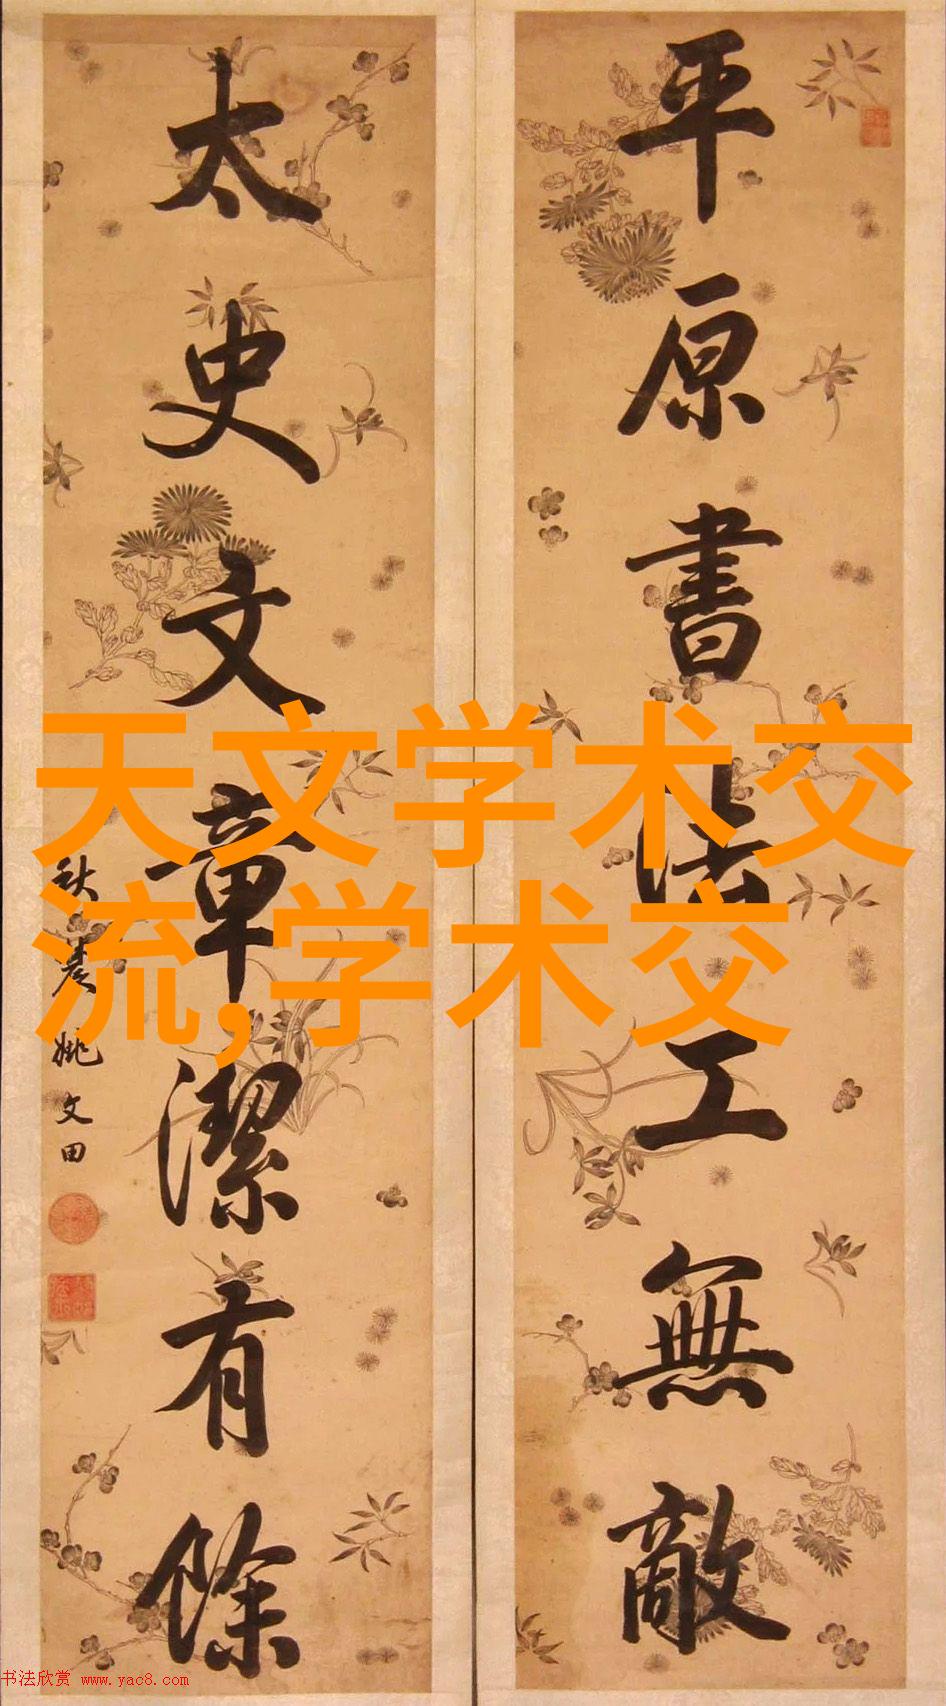 平原書法工無敵
太史文章潔有餘
秋農姚文田
天文学术交
流,学术交
书法欣赏 www.yac8.com